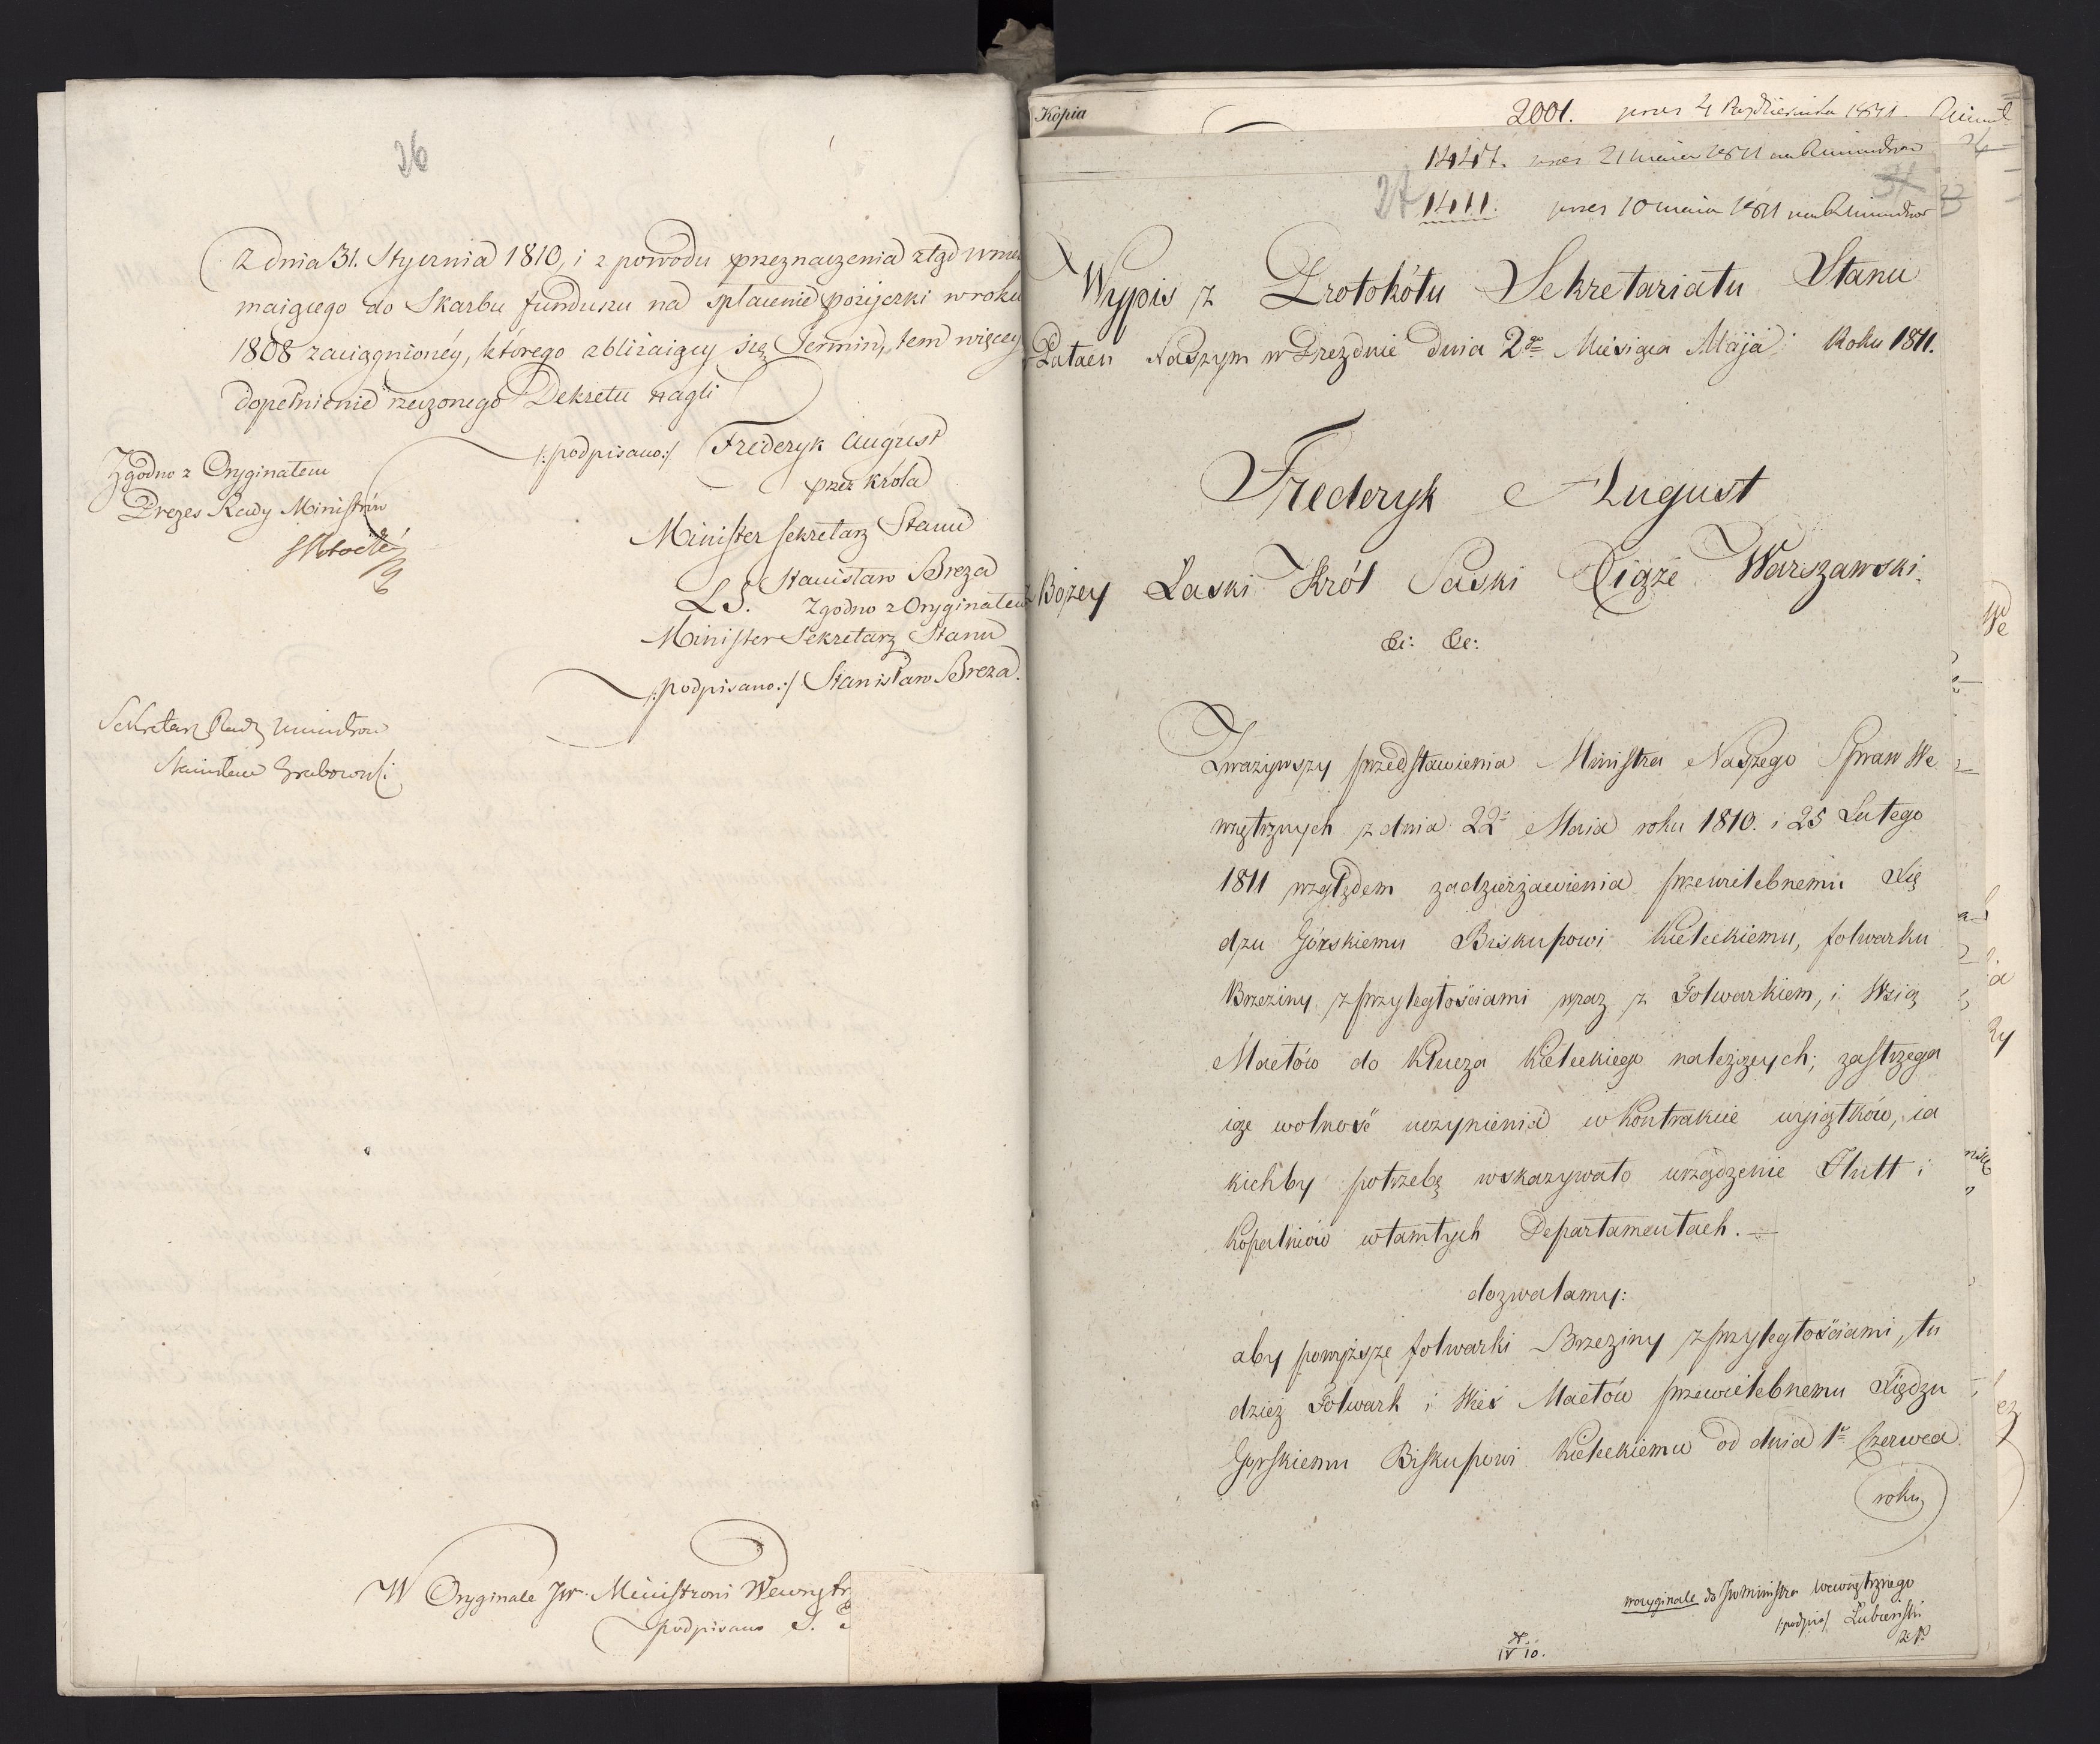 26
z dnia 31. Stycznia 1810, i z powodu przeznaczenia ztąd wnie
maiącego do Skarbu funduszu na spłacenie pożyczki w roku
1808 zaciągnioney, którego zbliżaiący się Termin, tem więcey
dopełnienie rzeczonego Dekretu nagli
/:podpisano:/ Frederyk August
przez Króla
Minister Sekretarz Stanu
Stanisław Breza
L.S. Zgodno z Oryginałem
Minister Sekretarz Stanu
/:podpisano:/ Stanisław Breza.
Zgodno z Oryginałem
Prezes Rady Ministrów
Sekretarz Rady Ministrów
Stanisław Grabowski
W Oryginale JW. Ministrowi Wewnętr
podpisano S.
Kopia
2001. prez 4 Października 1811.
1447. prez 21 maia 1811
27
1411. prez 10 maia 1811
Wypis z Protokółu Sekretariatu Stanu
Pałacu Naszym w Dreznie dnia 2go Miesiąca Maja Roku 1811.
Frederyk August
z Bożey Łaski Król Saski Xiąże Warszawski
&c: &c:
Zważywszy przedstawienia Ministra Naszego Spraw We
wnętrznych z dnia 22o Maia roku 1810. i 25 Lutego
1811 względem zadzierżawienia przewielebnemu Xię
dzu Górskiemu Biskupowi Kieleckiemu, folwarku
Brzeziny z przyległościami wraz z Folwarkiem, i Wsią
Mactów do Klucza Kieleckiego należących; zastrzega
iąc wolność uczynienia w Kontrakcie wyiątków, ia
kichby potrzebę wskazywało urządzenie Hutt i
Kopalniów w tamtych Departamentach.
dozwalamy:
aby powyższe folwarki Brzeziny z przyległościami, tu
dzież Folwark i Wieś Mactów przewielebnemu Xiędzu
Gorskiemu Biskupowi Kieleckiemu od dnia 1o Czerwca
roku
w oryginale do JW Ministra Wewnętrznego
/:podpis:/ Łubieński
IV 10.